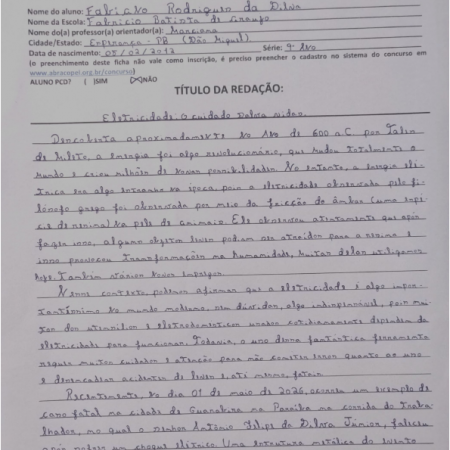 Nome do aluno: Fabriciano Rodrigues da Silva
Nome da Escola: Fabricio Batista de Araujo
Nome do(a) professor(a) orientador(a): Marciana
Cidade/Estado: Esperança - PB (São Miguel)
Data de nascimento: 05/02/2012 Série: 9º Ano
(o preenchimento desta ficha não vale como inscrição, é preciso preencher a cadastro no sistema do concurso em
www.abracopel.org.br/concurso)
ALUNO PCD? ( )SIM (X)NÃO
TÍTULO DA REDAÇÃO:
Eletricidade: O cuidado salva vidas.
Descoberta aproximadamente no Ano de 600 a.C por Tales
de Mileto, a energia foi algo revolucionário, que mudou totalmente o
mundo e criou milhões de novas possibilidades. No entanto, a energia elé-
trica era algo estranho na época, pois a eletricidade observada pelo fi-
lósofo grego foi observada por meio da fricção de âmbar (uma espé-
cie de resina) na pele de animais. Ele observou atentamente que após
fazer isso, alguns objetos leves podiam ser atraídos para a resina e
isso provocou transformações na humanidade, muitas delas utilizamos
hoje. Também
Nesse contexto, podemos afirmar que a eletricidade é algo impor-
tantíssimo no mundo moderno, sem dúvidas, algo indispensável, pois mui-
tos dos utensílios e eletrodomésticos usados cotidianamente dependem da
eletricidade para funcionar. Todavia, o uso dessa fantástica ferramenta
requer muitos cuidados e atenção para não cometer erros quanto ao uso
e desencadear acidentes de leves e, até mesmo, fatais.
Recentemente, no dia 01 de maio de 2026, ocorreu um exemplo de
caso fatal na cidade de Guarabira na Paraíba na corrida do Traba-
lhador, no qual o senhor Antônio Filipe da Silva Júnior, faleceu
após sofrer um choque elétrico. Uma estrutura metálica do evento